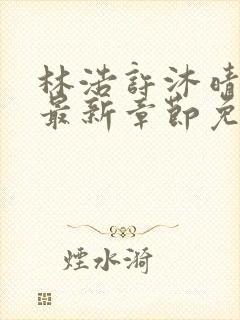 林浩許沐晴
最新章節免
煙水漪